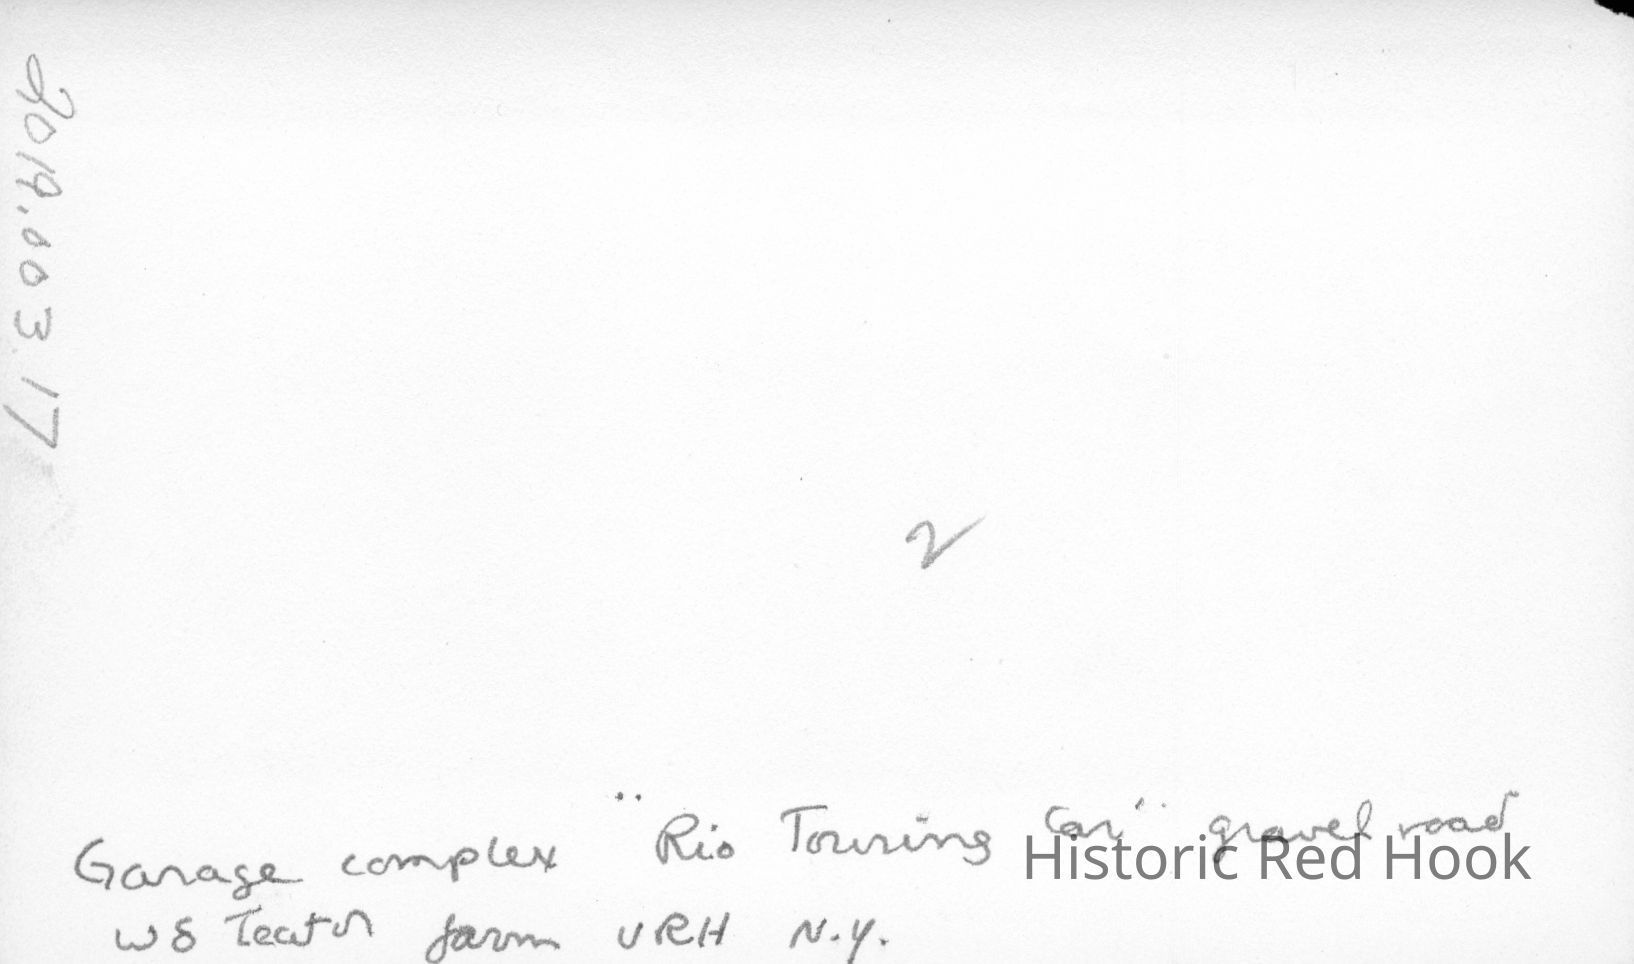 2019.003.17
2
Garage complex "Rio Touring Car" gravel road
Historic Red Hook
WS Teator farm URH N.Y.